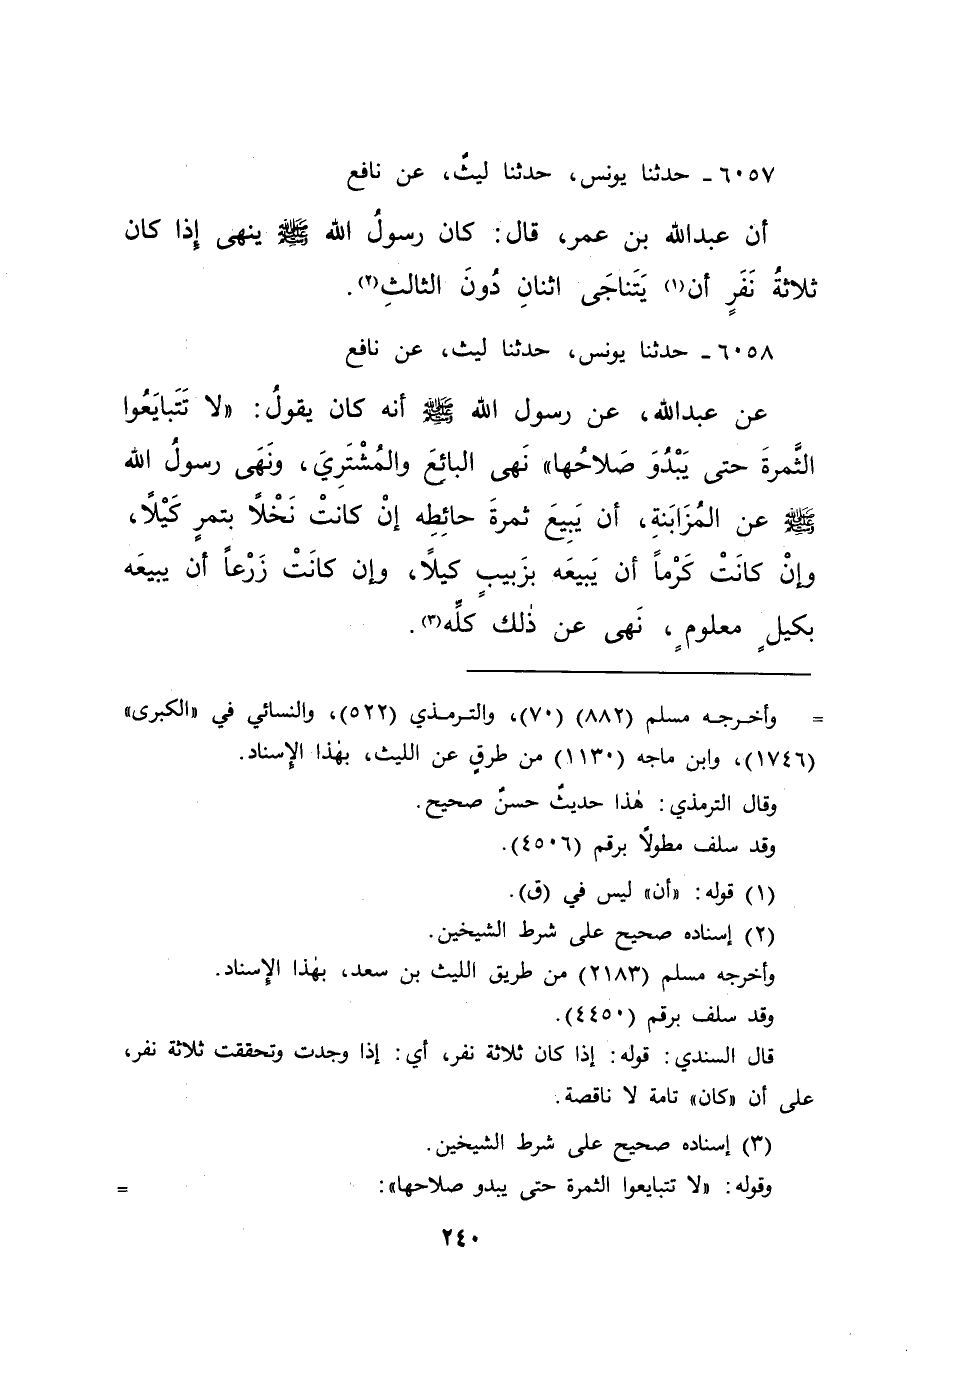 ٦٠٥٧ـ حدثنا يونس، حدثنا ليثٌ، عن نافع
أن عبدالله بن عمر، قال: كان رسولُ الله ﷺ ينهى إِذا كان
ثلاثةُ نَفَرٍ أن(١) يَتَناجَى اثنانِ دُونَ الثالثِ(٢).
٦٠٥٨ـ حدثنا يونس، حدثنا ليث، عن نافع
عن عبدالله، عن رسول الله ﷺ أنه كان يقولُ: «لا تَتَبايَعُوا
الثَّمرةَ حتى يَبْدُوَ صَلاحُها» نَهى البائِعَ والمُشْتَرِيَ، ونَهَى رسولُ الله
ﷺ عن المُزَابَنةِ، أن يَبِيعَ ثمرةَ حائِطِه إنْ كانتْ نَخْلًا بتمرٍ كَيْلًا،
وإنْ كانَتْ كَرْماً أن يَبيعَه بزَبيبٍ كيلًا، وإن كانَتْ زَرْعاً أن يبيعَه
بكيلٍ معلومٍ، نَهى عن ذٰلك كلِّه(٣).
= وأخرجه مسلم (٨٨٢) (٧٠)، والترمذي (٥٢٢)، والنسائي في «الكبرى»
(١٧٤٦)، وابن ماجه (١١٣٠) من طرقٍ عن الليث، بهٰذا الإسناد.
وقال الترمذي: هٰذا حديثٌ حسنٌ صحيح.
وقد سلف مطولًا برقم (٤٥٠٦).
(١) قوله: «أن» ليس في (ق).
(٢) إسناده صحيح على شرط الشيخين.
وأخرجه مسلم (٢١٨٣) من طريق الليث بن سعد، بهٰذا الإسناد.
وقد سلف برقم (٤٤٥٠).
قال السندي: قوله: إذا كان ثلاثة نفر، أي: إذا وجدت وتحققت ثلاثة نفر،
على أن «كان» تامة لا ناقصة.
(٣) إسناده صحيح على شرط الشيخين.
وقوله: «لا تتبايعوا الثمرة حتى يبدو صلاحها»: =
٢٤٠